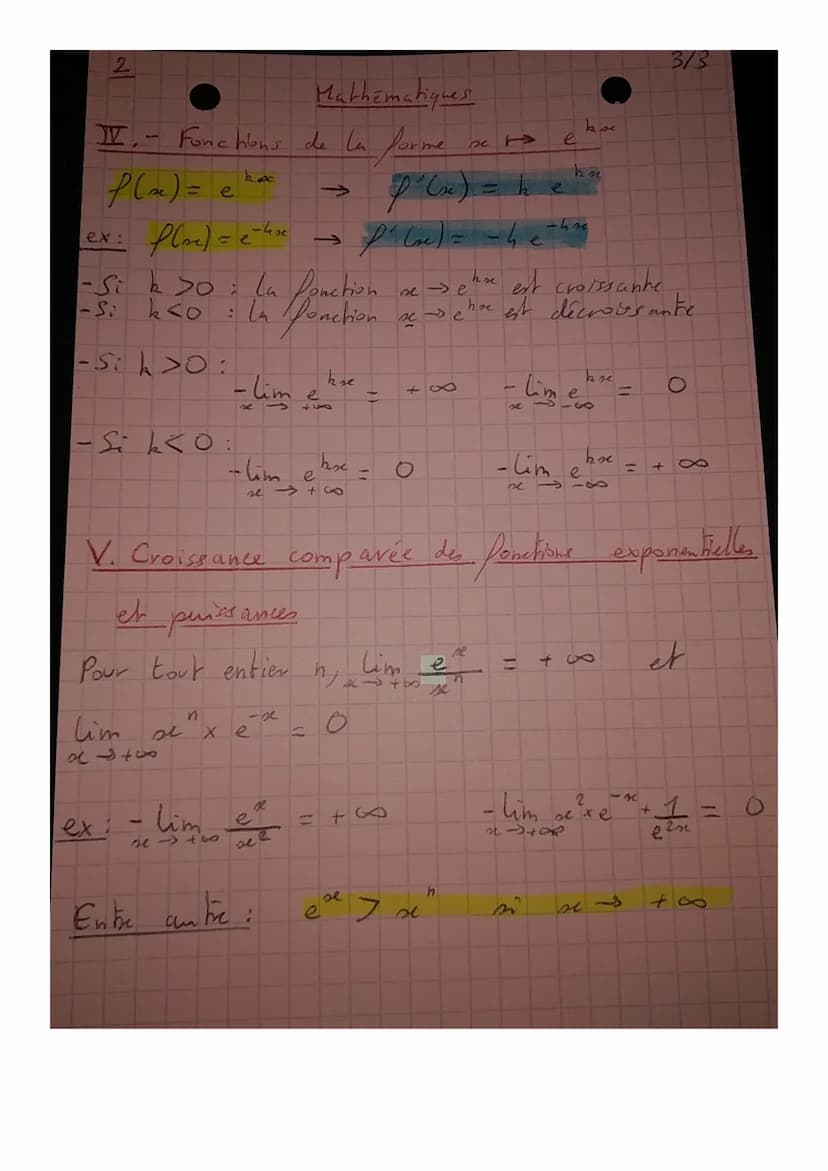 2 3/3
Mathématiques
IV.- Fonctions de la forme x ↦ e^kx
f(x) = e^kx → f'(x) = k e^kx
ex: f(x) = e^-4x → f'(x) = -4e^-4x
- Si k > 0 : la fonction x → e^kx est croissante
- Si k < 0 : la fonction x → e^kx est décroissante
- Si k > 0 :
- lim x → +∞ e^kx = + ∞ - lim x → -∞ e^kx = 0
- Si k < 0 :
- lim x → +∞ e^kx = 0 - lim x → -∞ e^kx = + ∞
V. Croissance comparée des fonctions exponentielles
et puissances
Pour tout entier n, lim x → +∞ e^x / x^n = + ∞ et
lim x → +∞ x^n × e^-x = 0
ex: - lim x → +∞ e^x / x^2 = + ∞ - lim x → +∞ x^2 × e^-x + 1 / e^2x = 0
Entre autre : e^x > x^n si x → + ∞